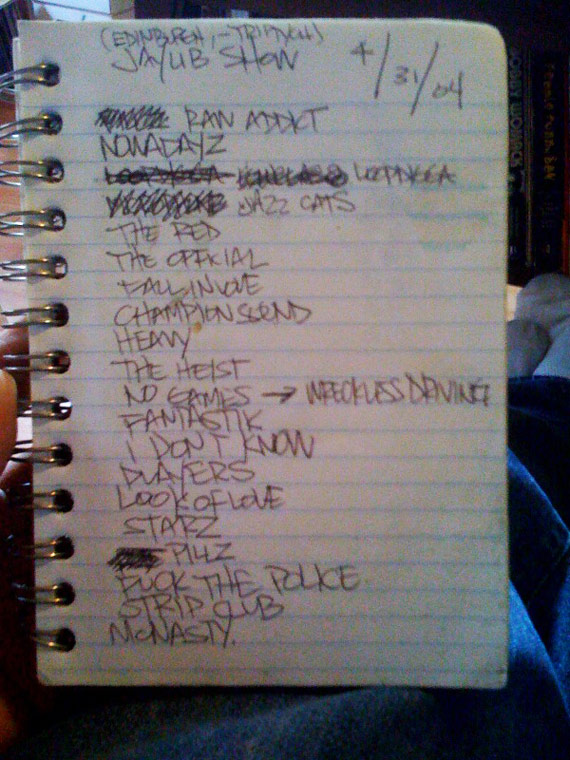 (EDINBURGH, - TRIANGLE)
JAYLIB SHOW 4/31/04
RAW ADDICT
NOWADAYZ
LOOPDIGGA
JAZZ CATS
THE RED
THE OFFICIAL
FALL IN LOVE
CHAMPION SOUND
HEAVY
THE HEIST
NO GAMES → WRECKLESS DRIVING
FANTASTIK
I DON'T KNOW
PLAYERS
LOOK OF LOVE
STARZ
PILLZ
FUCK THE POLICE
STRIP CLUB
McNASTY.
BOBBY WOMACK